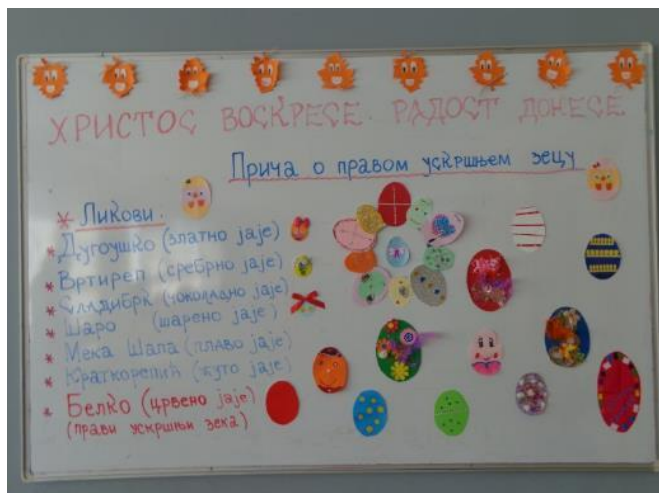 ХРИСТОС ВОСКРЕСЕ РАДОСТ ДОНЕСЕ
Прича о правом ускршњем зецу
* Ликови:
* Дугоушко (златно јаје)
* Вртиреп (сребрно јаје)
* Сладибрк (чоколадно јаје)
* Шаро (шарено јаје)
* Мека Шапа (плаво јаје)
* Краткорепић (жуто јаје)
* Белко (црвено јаје)
(прави ускршњи зека)